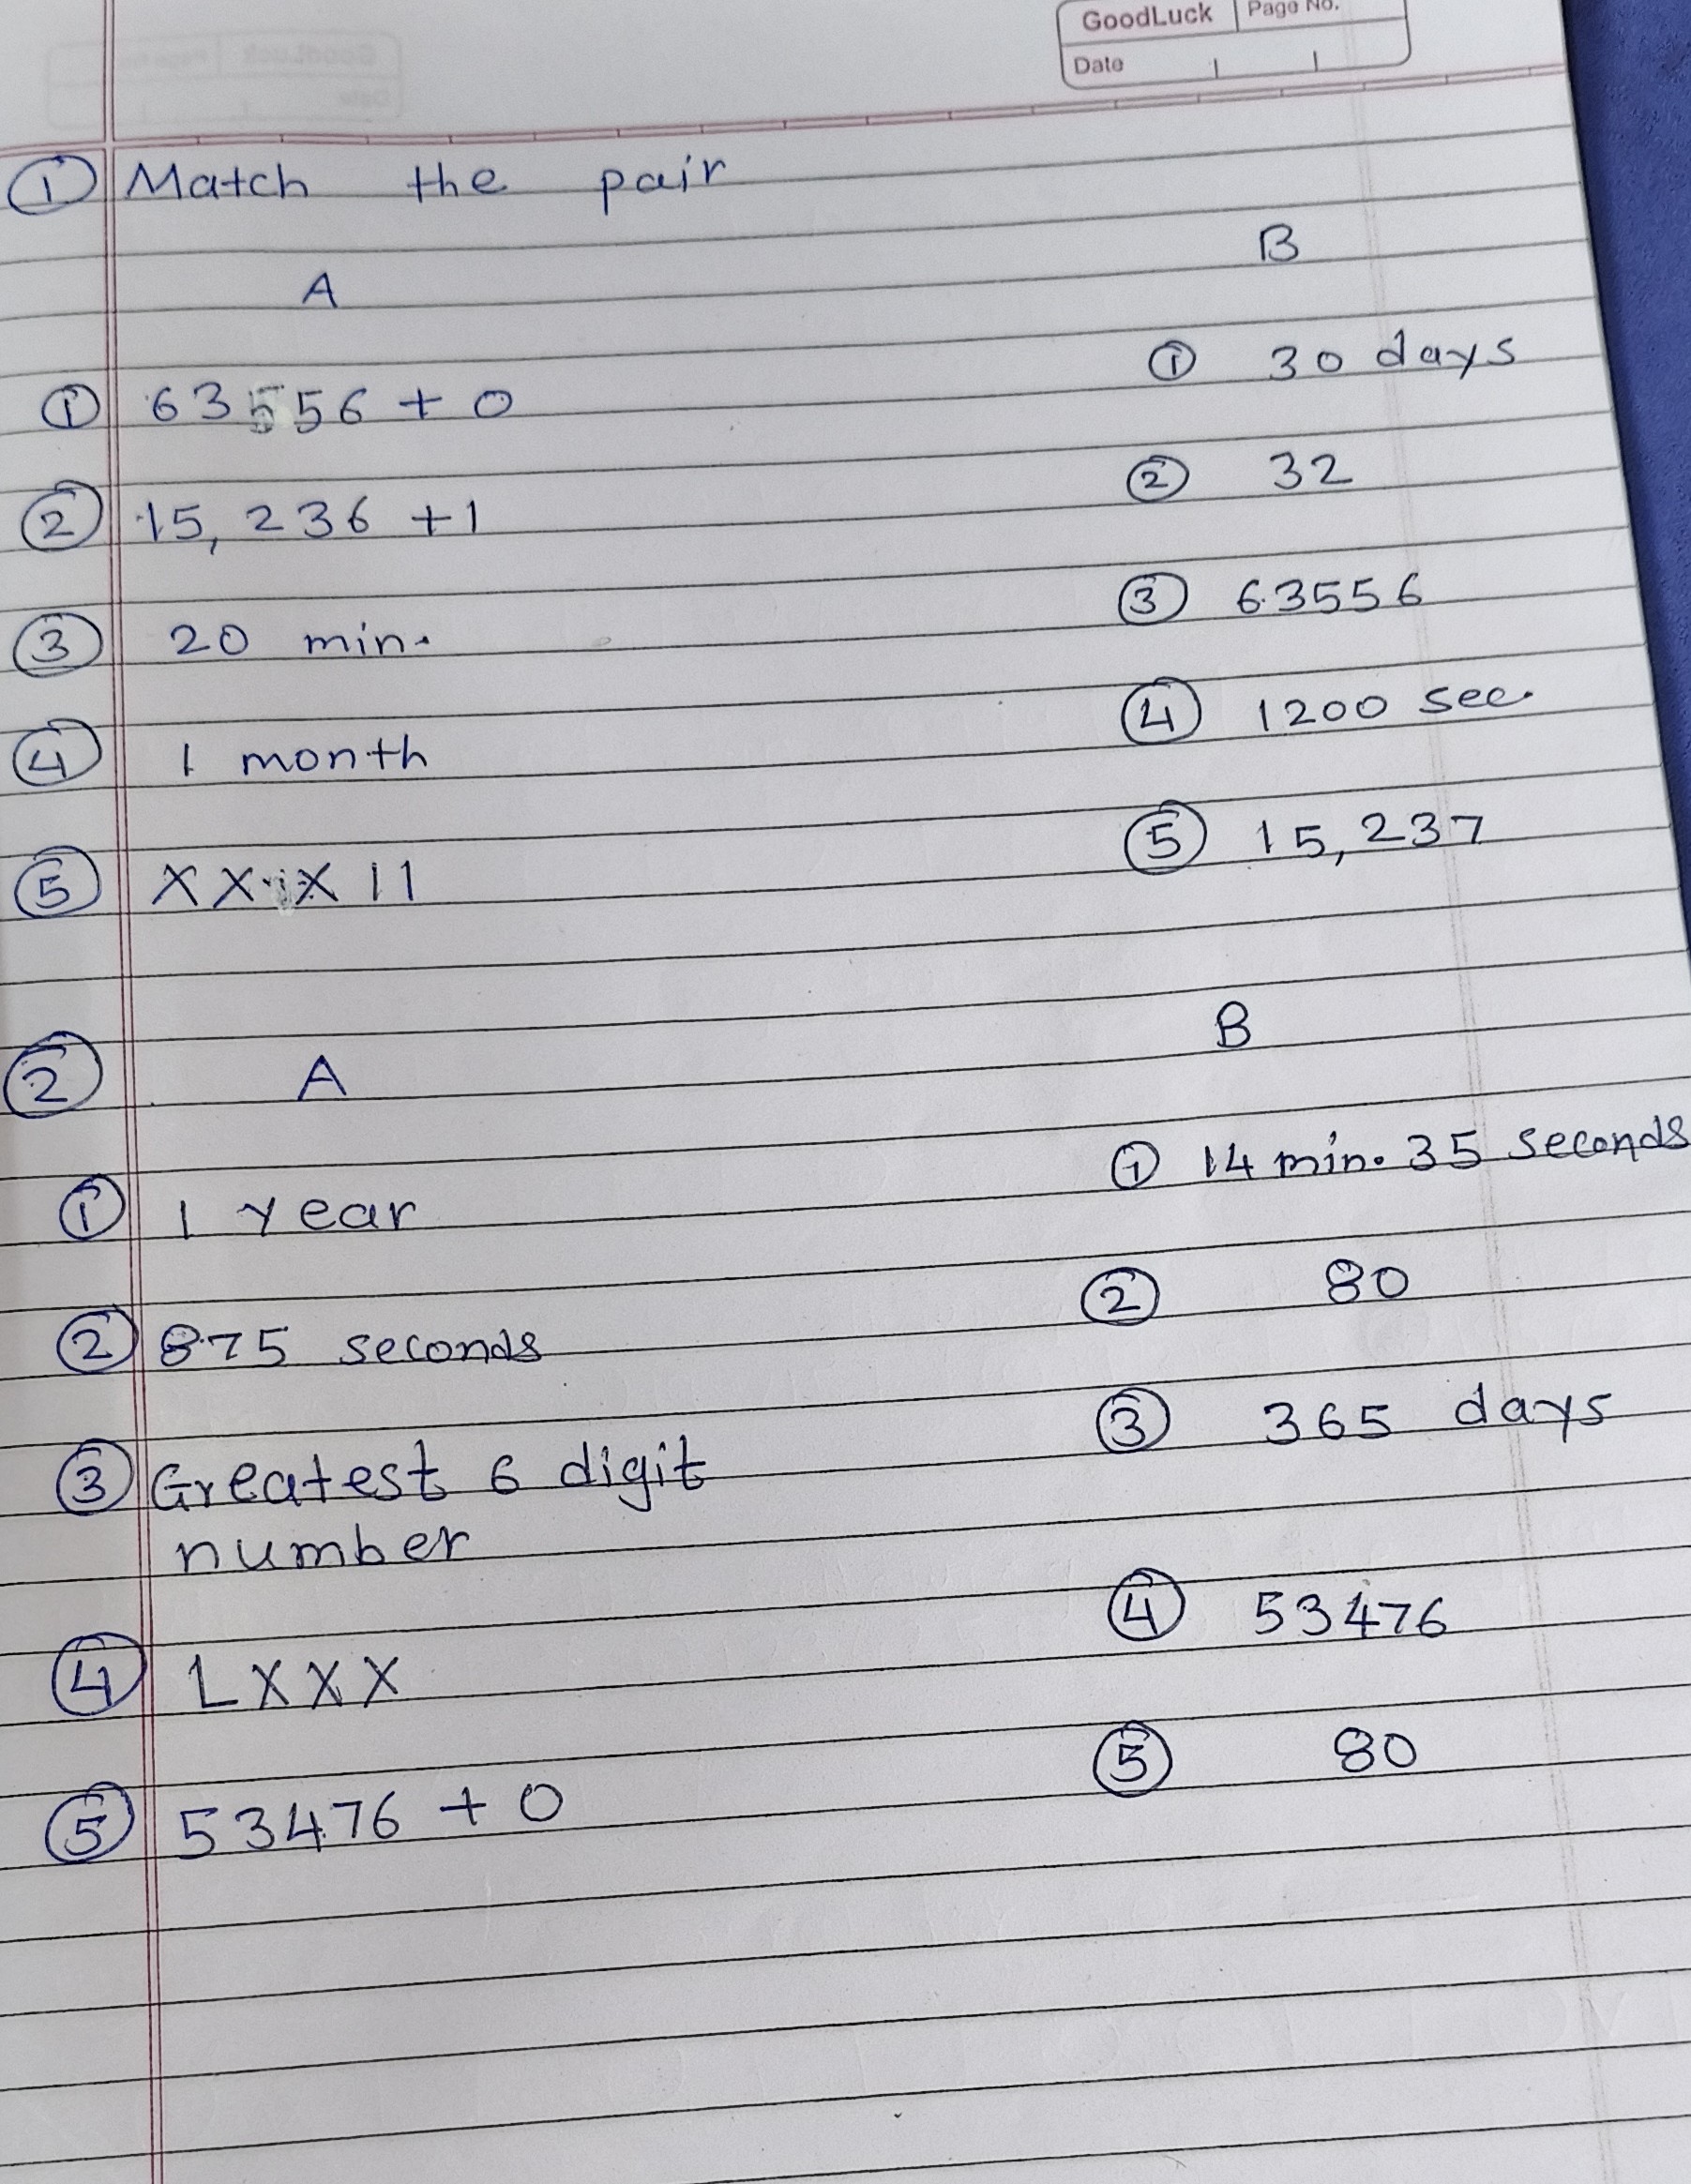 GoodLuck Page No.
Date
① Match the pair
A B
① 63556 + 0 ① 30 days
② 15, 236 +1 ② 32
③ 20 min. ③ 63556
④ 1 month ④ 1200 sec.
⑤ XXX II ⑤ 15, 237
② A B
① 1 Year ① 14 min. 35 seconds
② 875 seconds ② 80
③ Greatest 6 digit ③ 365 days
number
④ LXXX ④ 53476
⑤ 53476 + 0 ⑤ 80